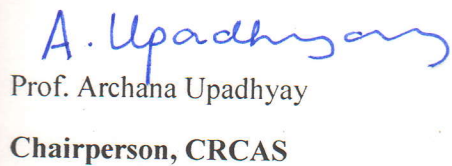 A. Upadhyay
Prof. Archana Upadhyay
Chairperson, CRCAS